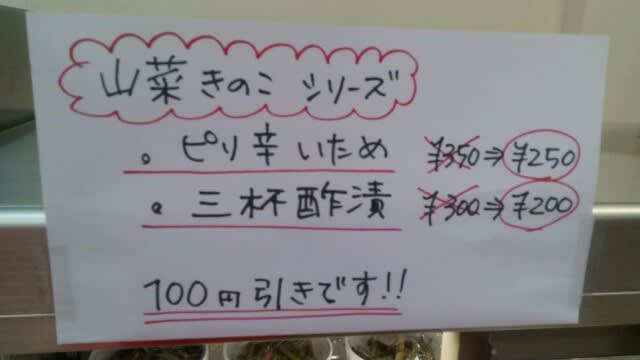 山菜きのこシリーズ
。ピリ辛いため ¥350⇒¥250
。三杯酢漬 ¥300⇒¥200
100円引きです!!